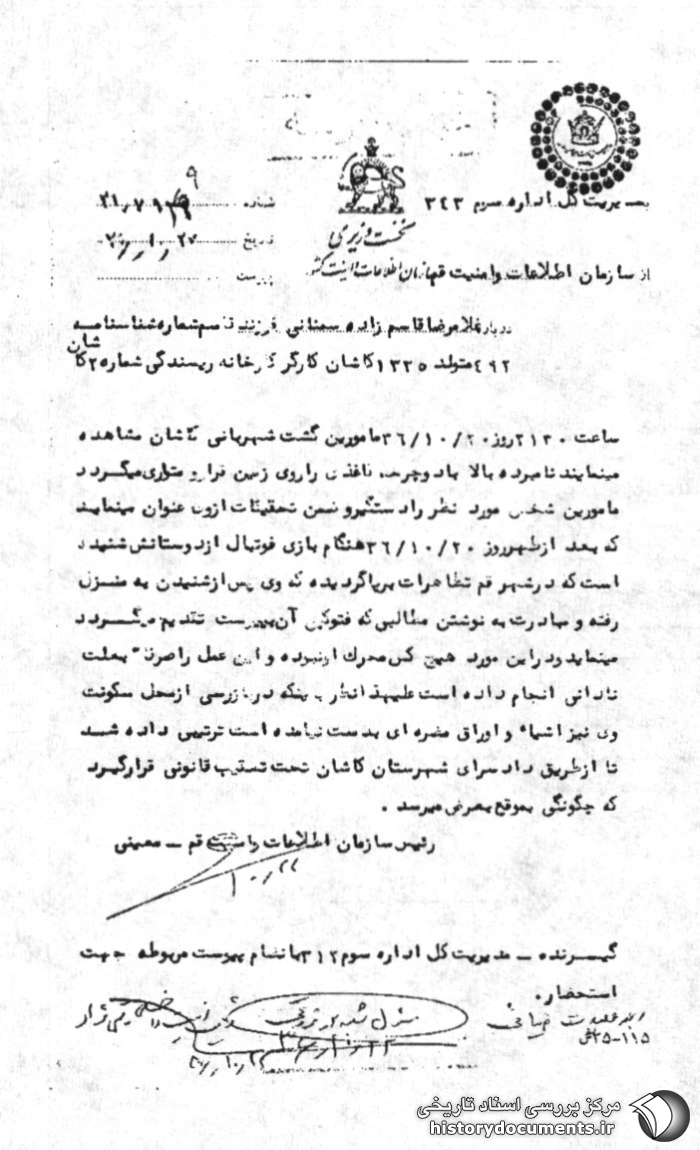 بمدیریت کل اداره سوم ۳۴۳
شماره
تاریخ
پیوست
نخست وزیری
سازمان اطلاعات و امنیت کشور
از سازمان اطلاعات وامنیت قم
درباره غلامرضا قاسم زاده سمنانی فرزند قاسم شماره شناسنامه
۴۹۲ متولد ۱۳۳۵ کاشان کارگر کارخانه ریسندگی شماره ۲ کاشان
ساعت ۲۱۳۰ روز ۳۶/۱۰/۲۰ مامورین گشت شهربانی کاشان مشاهده
مینمایند نامبرده بالا با دوچرخه کاغذی را روی زمین قرار و متواری میگردد
مامورین شخص مورد نظر را دستگیر و ضمن تحقیقات ازوی عنوان مینماید
که بعد از ظهر روز ۳۶/۱۰/۲۰ هنگام بازی فوتبال از دوستانش شنیده
است که در شهر قم تظاهرات برپا گردیده که وی پس از شنیدن به منزل
رفته و مبادرت به نوشتن مطالبی که فتوکپی آن بپیوست تقدیم میگردد
مینماید و در این مورد هیچ کس محرک او نبوده و این عمل را صرفا" بعلت
نادانی انجام داده است علیهذا نظر باینکه در بازرسی از محل سکونت
وی نیز اشیاء و اوراق مضره ای بدست نیامده است ترتیبی داده شد
تا از طریق دادسرای شهرستان کاشان تحت تعقیب قانونی قرار گیرد
که چگونگی بموقع بعرض میرسد .
رئیس سازمان اطلاعات وامنیت قم ـ معینی
گیرنده ـ مدیریت کل اداره سوم ۳۱۲ بانضمام پیوست مربوطه جهت
استحضار.
مرکز بررسی اسناد تاریخی
historydocuments.ir